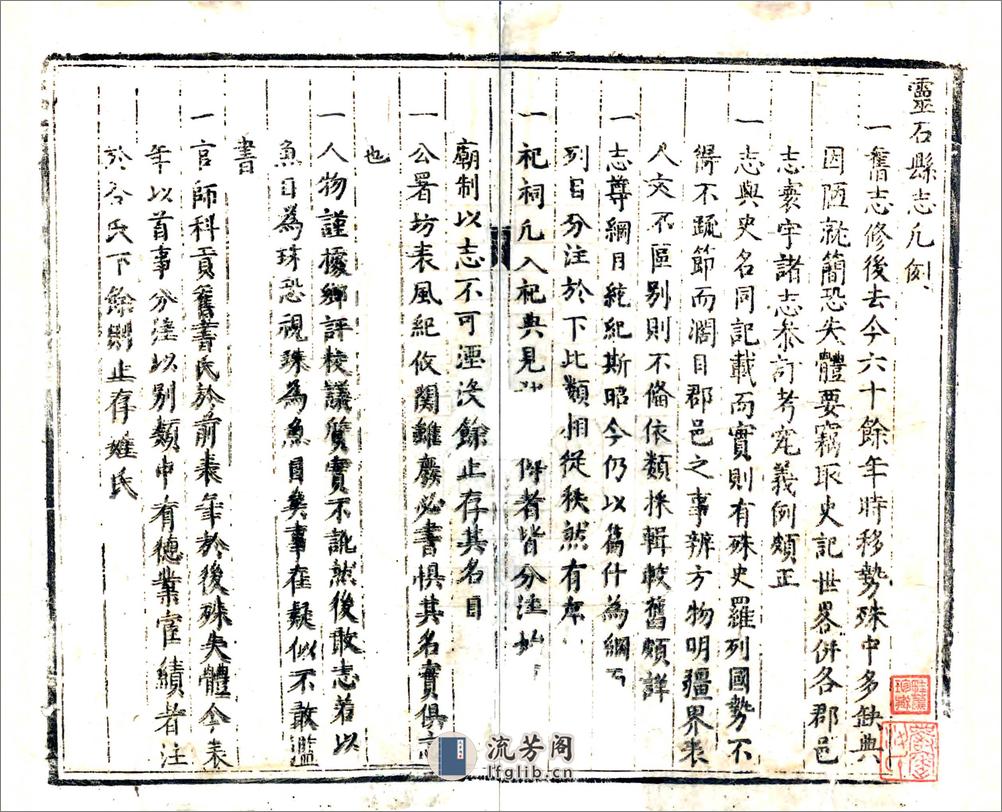 靈石縣志凡例
一舊志修後去今六十餘年時移勢殊中多缺典
因陋就簡恐失體要竊取史記世畧併各郡邑
志寰宇諸志參訂考究義例頗正
一志與史名同記載而實則有殊史羅列國勢不
得不疏節而濶目郡邑之事辨方物明疆界表
人文不區別則不備依類採輯較舊頗詳
一志尊綱目統紀斯昭今仍以舊什為綱
列目分注於下比類相從秩然有
一祀祠凡入祀典見 者皆分注
廟制以志不可湮沒餘止存其名目
一公署坊表風紀攸関雖廢必書懼其名實俱
也
一人物謹據鄉評校議質實不訛然後敢志若以
魚目為珠恐視珠為魚目矣事在疑似不敢濫
書
一官師科貢舊書氏於前表年於後殊失體今表
年以首事分注以別類中有德業宦績者注
於各氏下餘則止存姓氏
流芳阁
lfglib.cn